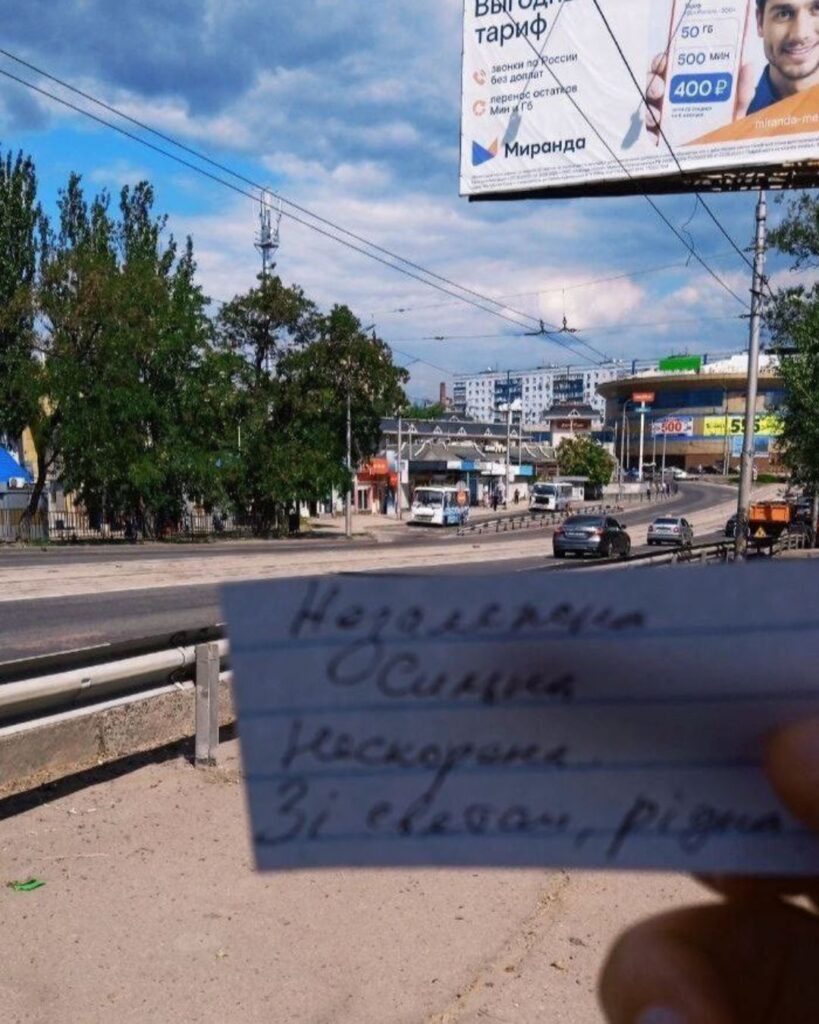 Выгодный
тариф
звонки по России
без доплат
перенос остатков
Мин и Гб
Миранда
50 ГБ
500 мин
400 ₽
miranda-me
500
555
Незалежна
Сильна
Нескорена
Зі святом, рідна